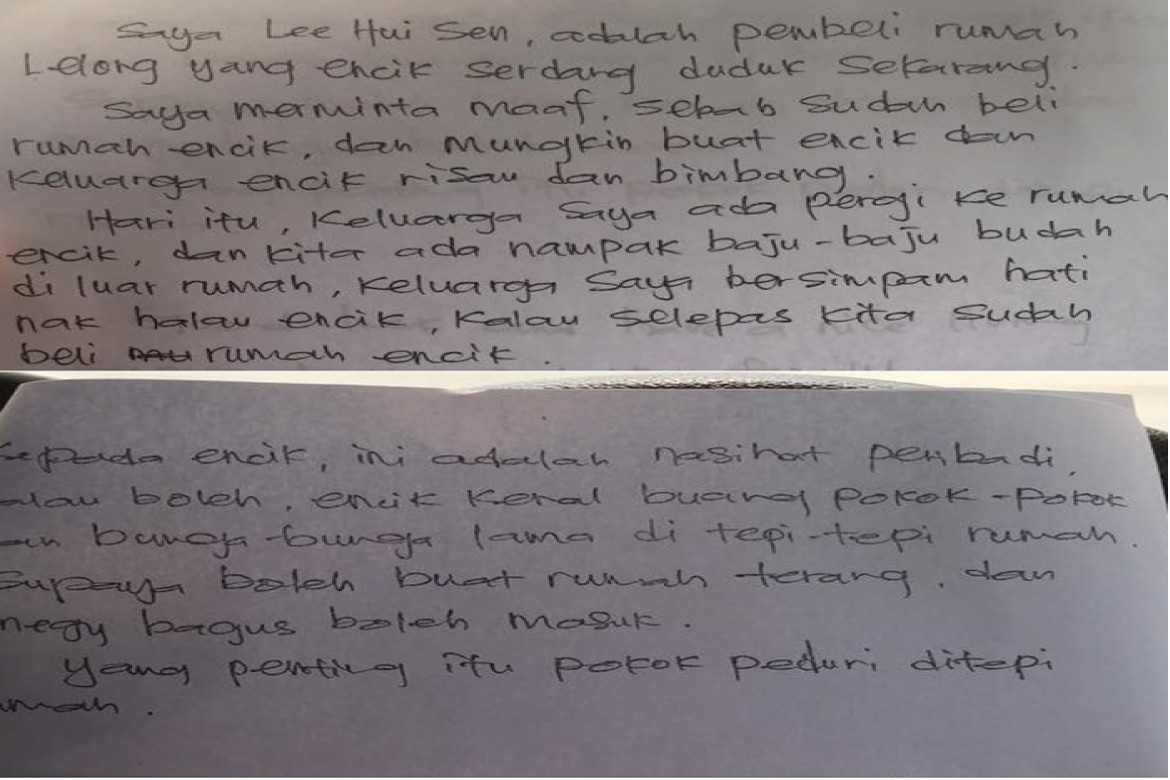 Saya Lee Hui Sen, adalah pembeli rumah
Lelong yang encik serdang duduk Sekarang.
Saya merminta maaf, sebab sudah beli
rumah encik, dan mungkin buat encik dan
Keluarga encik risau dan bimbang.
Hari itu, Keluarga Saya ada pergi ke rumah
encik, dan kita ada nampak baju-baju budah
di luar rumah, Keluarga Saya bersimpam hati
nak halau encik, Kalau selepas kita Sudah
beli rumah encik.
epada encik, ini adalah nasihat peribadi,
alau boleh, encik Kenal buang pokok-pokok
an bunga-bunga lama di tepi-tepi rumah.
Supaya boleh buat rumah terang, dan
negy bagus boleh masuk.
Yang penting itu pokok peduri ditepi
umah.